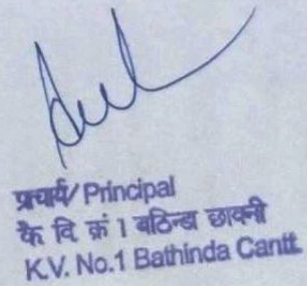 प्राचार्य/ Principal
के वि क्रं 1 बठिन्डा छावनी
K.V. No.1 Bathinda Cantt.